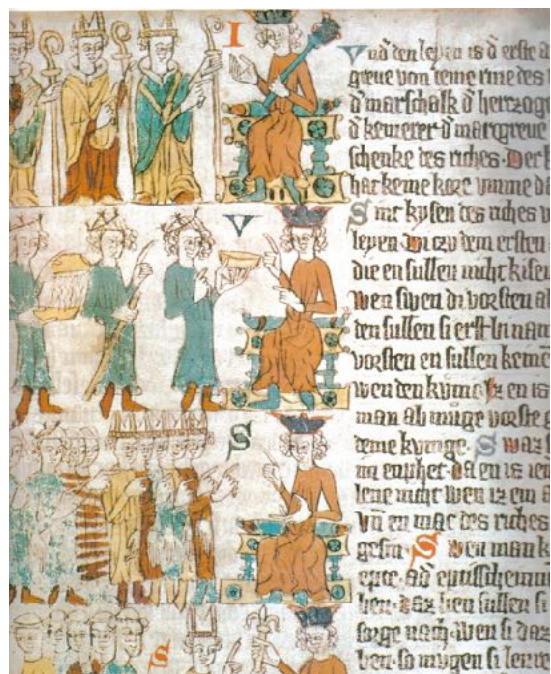 I
Vnd den leyen is d erste a
greue von deme rine des
d marschalk d herzoge
d kemerer d margreue
schenke des riches. Der k
har keine kore vmme da
V
S int kysen des riches v
leyen. in czu dem ersten
die en sullen nicht kisen
wen swen di vorsten al
den sullen si erst bi nam
vorsten en sullen keinē
wen den kūnc. Iz en is
man ab muge vorste g
S
deme kyninge. S waz
im enphet. da en is ien
lene nicht wen iz em a
vn en mac des riches
gesin. S wen man k
epte. ad
ben. daz len sullen si
S
sorge nach. wen si daz
ben. so mugen si lenre